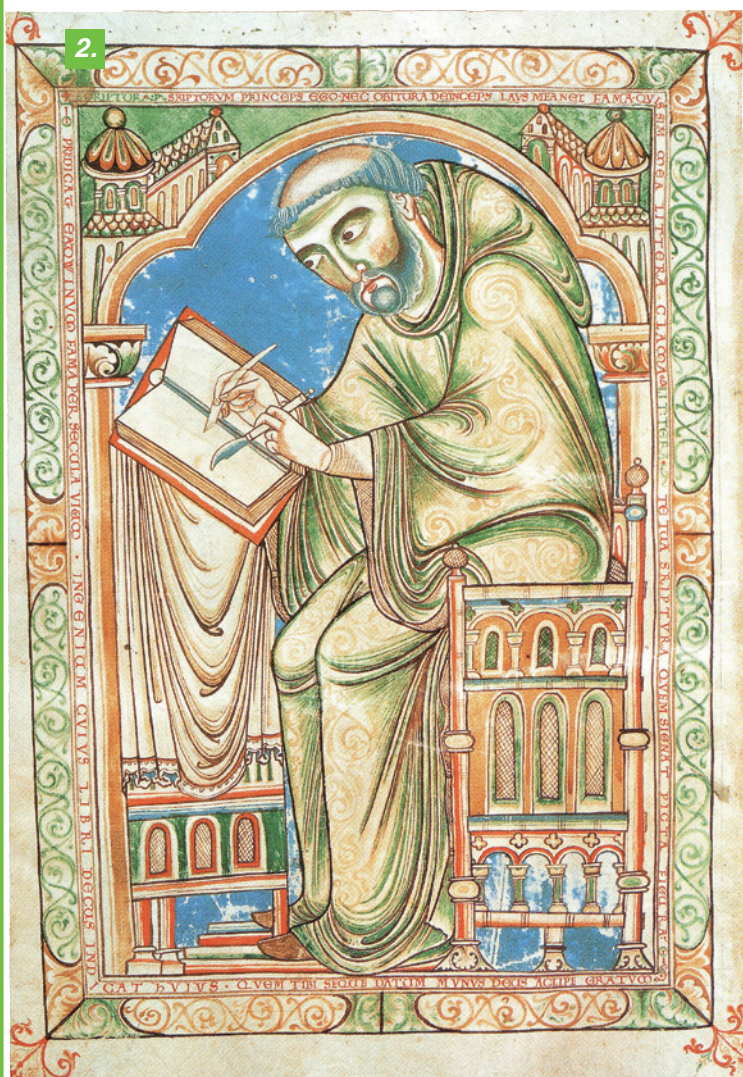 2.
SRIPTORVM PRINCEPS EGO·NEC OBITVRA DEINCEPS LAVS MEA NEC FAMA·QVIS
SIM MEA LITTERA · CLAMA TE TVA SRIPTVRA QVEM SIGNAT PICTA FIGVRA
PREDICAT FAMA PER SECVLA VIVVM · INGENIVM CVIVS LIBRI DECVS IND
ICAT HVIVS · QVEM TIBI SEQVE DATVM MVNVS DEVS ACCIPE GRATVM